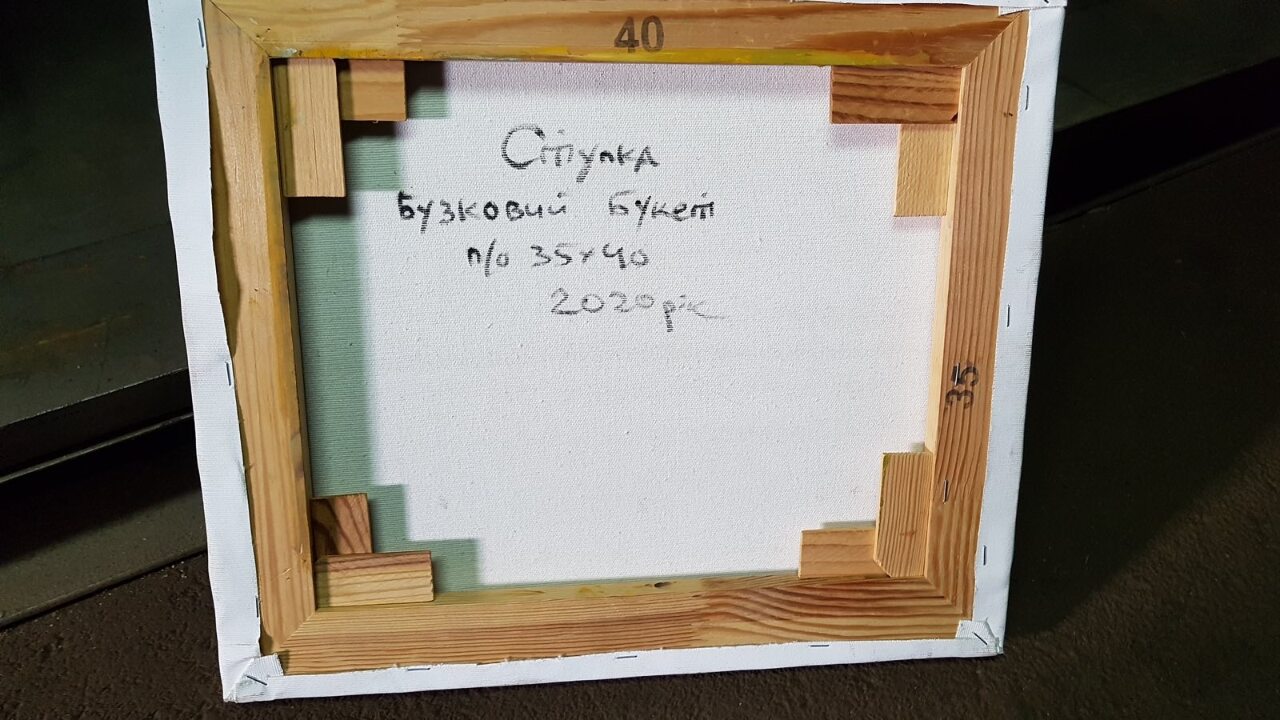 40
Ступка
Бузковий Букет
п/о 35х40
2020 рік
35